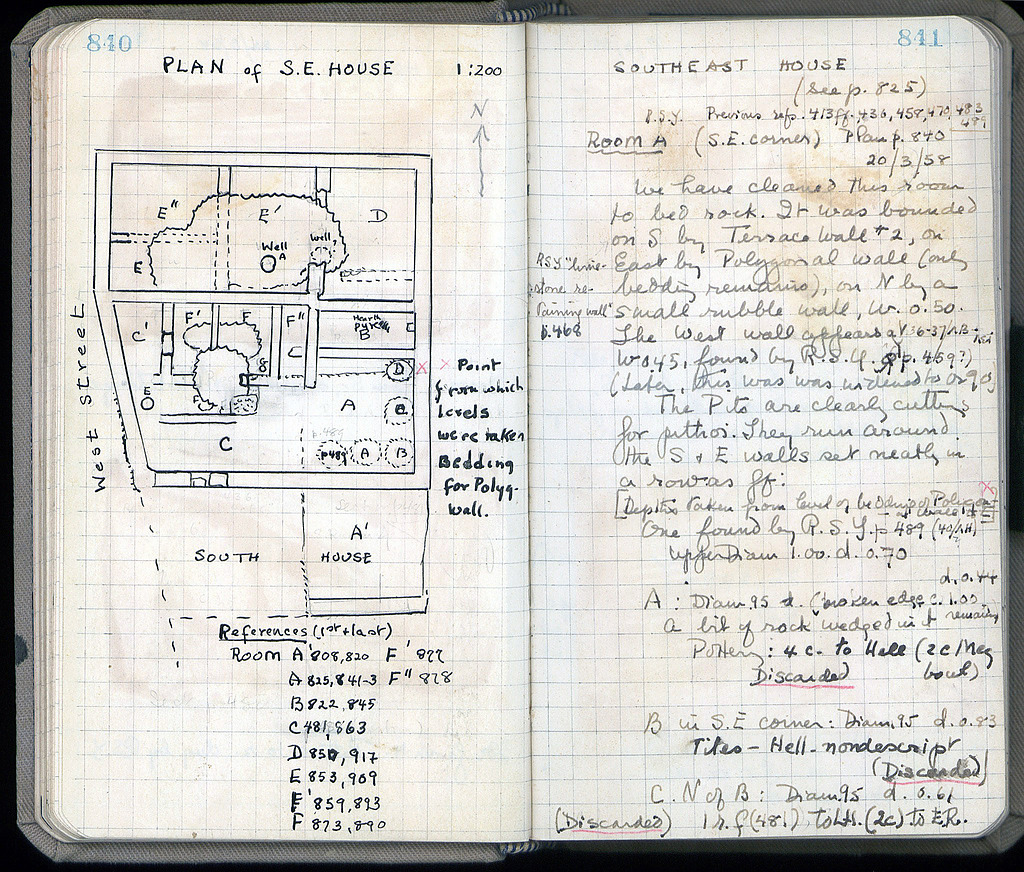 840
PLAN of S.E. HOUSE 1:200
N
E" E' D
Well
A
Well
E
C' F' F F" C
Hearth
PYRE
B
E
D
× × Point
from which
levels
were taken
Bedding
for Polyg.
wall.
West Street
E
G
A
C
C
p.489
p489 A B
A'
SOUTH HOUSE
References (1st + last)
Room A' 808,820 F' 877
A 825,841-3 F" 878
B 822,845
C 481,863
D 850,917
E 853,909
E' 859,893
F 873,890
841
SOUTHEAST HOUSE
(see p. 825)
R.S.Y. Previous refs. 413 ff, 436, 458, 470, 483
489
Room A (S.E. corner) Plan p. 840
20/3/58
We have cleaned this room
to bed rock. It was bounded
on S by Terrace Wall #2, on
East by Polygonal wall (only
bedding remains), on N by a
small rubble wall, W. 0.50.
RSY "lime-
stone re-
taining wall"
p.468
The West wall appears at 36-37/
W 0.45, found by R.S.Y. p. 459?)
(Later, this was was widened to 0.90)
The Pits are clearly cuttings
for pithoi. They run around
the S & E walls set neatly in
a row as ff:
[Depths taken from level of bedding of Polygonal
wall
One found by R.S.Y. p 489 (40/ΛH)
upper Diam 1.00. d. 0.70
d. 0.44
A : Diam .95 d. (broken edge c. 1.00
a bit of rock wedged in it remaining
Pottery: 4 c. to Hell (2c/Meg
Discarded bowl)
B in S.E corner: Diam .95 d. 0.83
Tiles - Hell - nondescript
(Discarded)
C. N of B : Diam .95 d. 0.61
(Discarded) 1 r.f (481) to LH. (2c) to E.R.